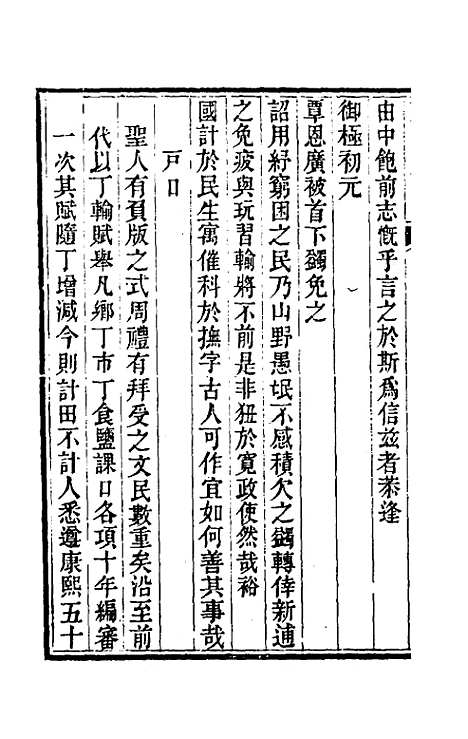 由中飽前志慨乎言之於斯爲信茲者恭逢
御極初元
覃恩廣被首下蠲免之
詔用紓窮困之民乃山野愚氓不感積欠之蠲轉倖新逋
之免疲與玩習輸將不前是非狃於寬政使然哉裕
國計於民生寓催科於撫字古人可作宜如何善其事哉
戶口
聖人有負版之式周禮有拜受之文民數重矣沿至前
代以丁輸賦舉凡鄉丁市丁食鹽課口各項十年編審
一次其賦隨丁增減今則計田不計人悉遵康熙五十